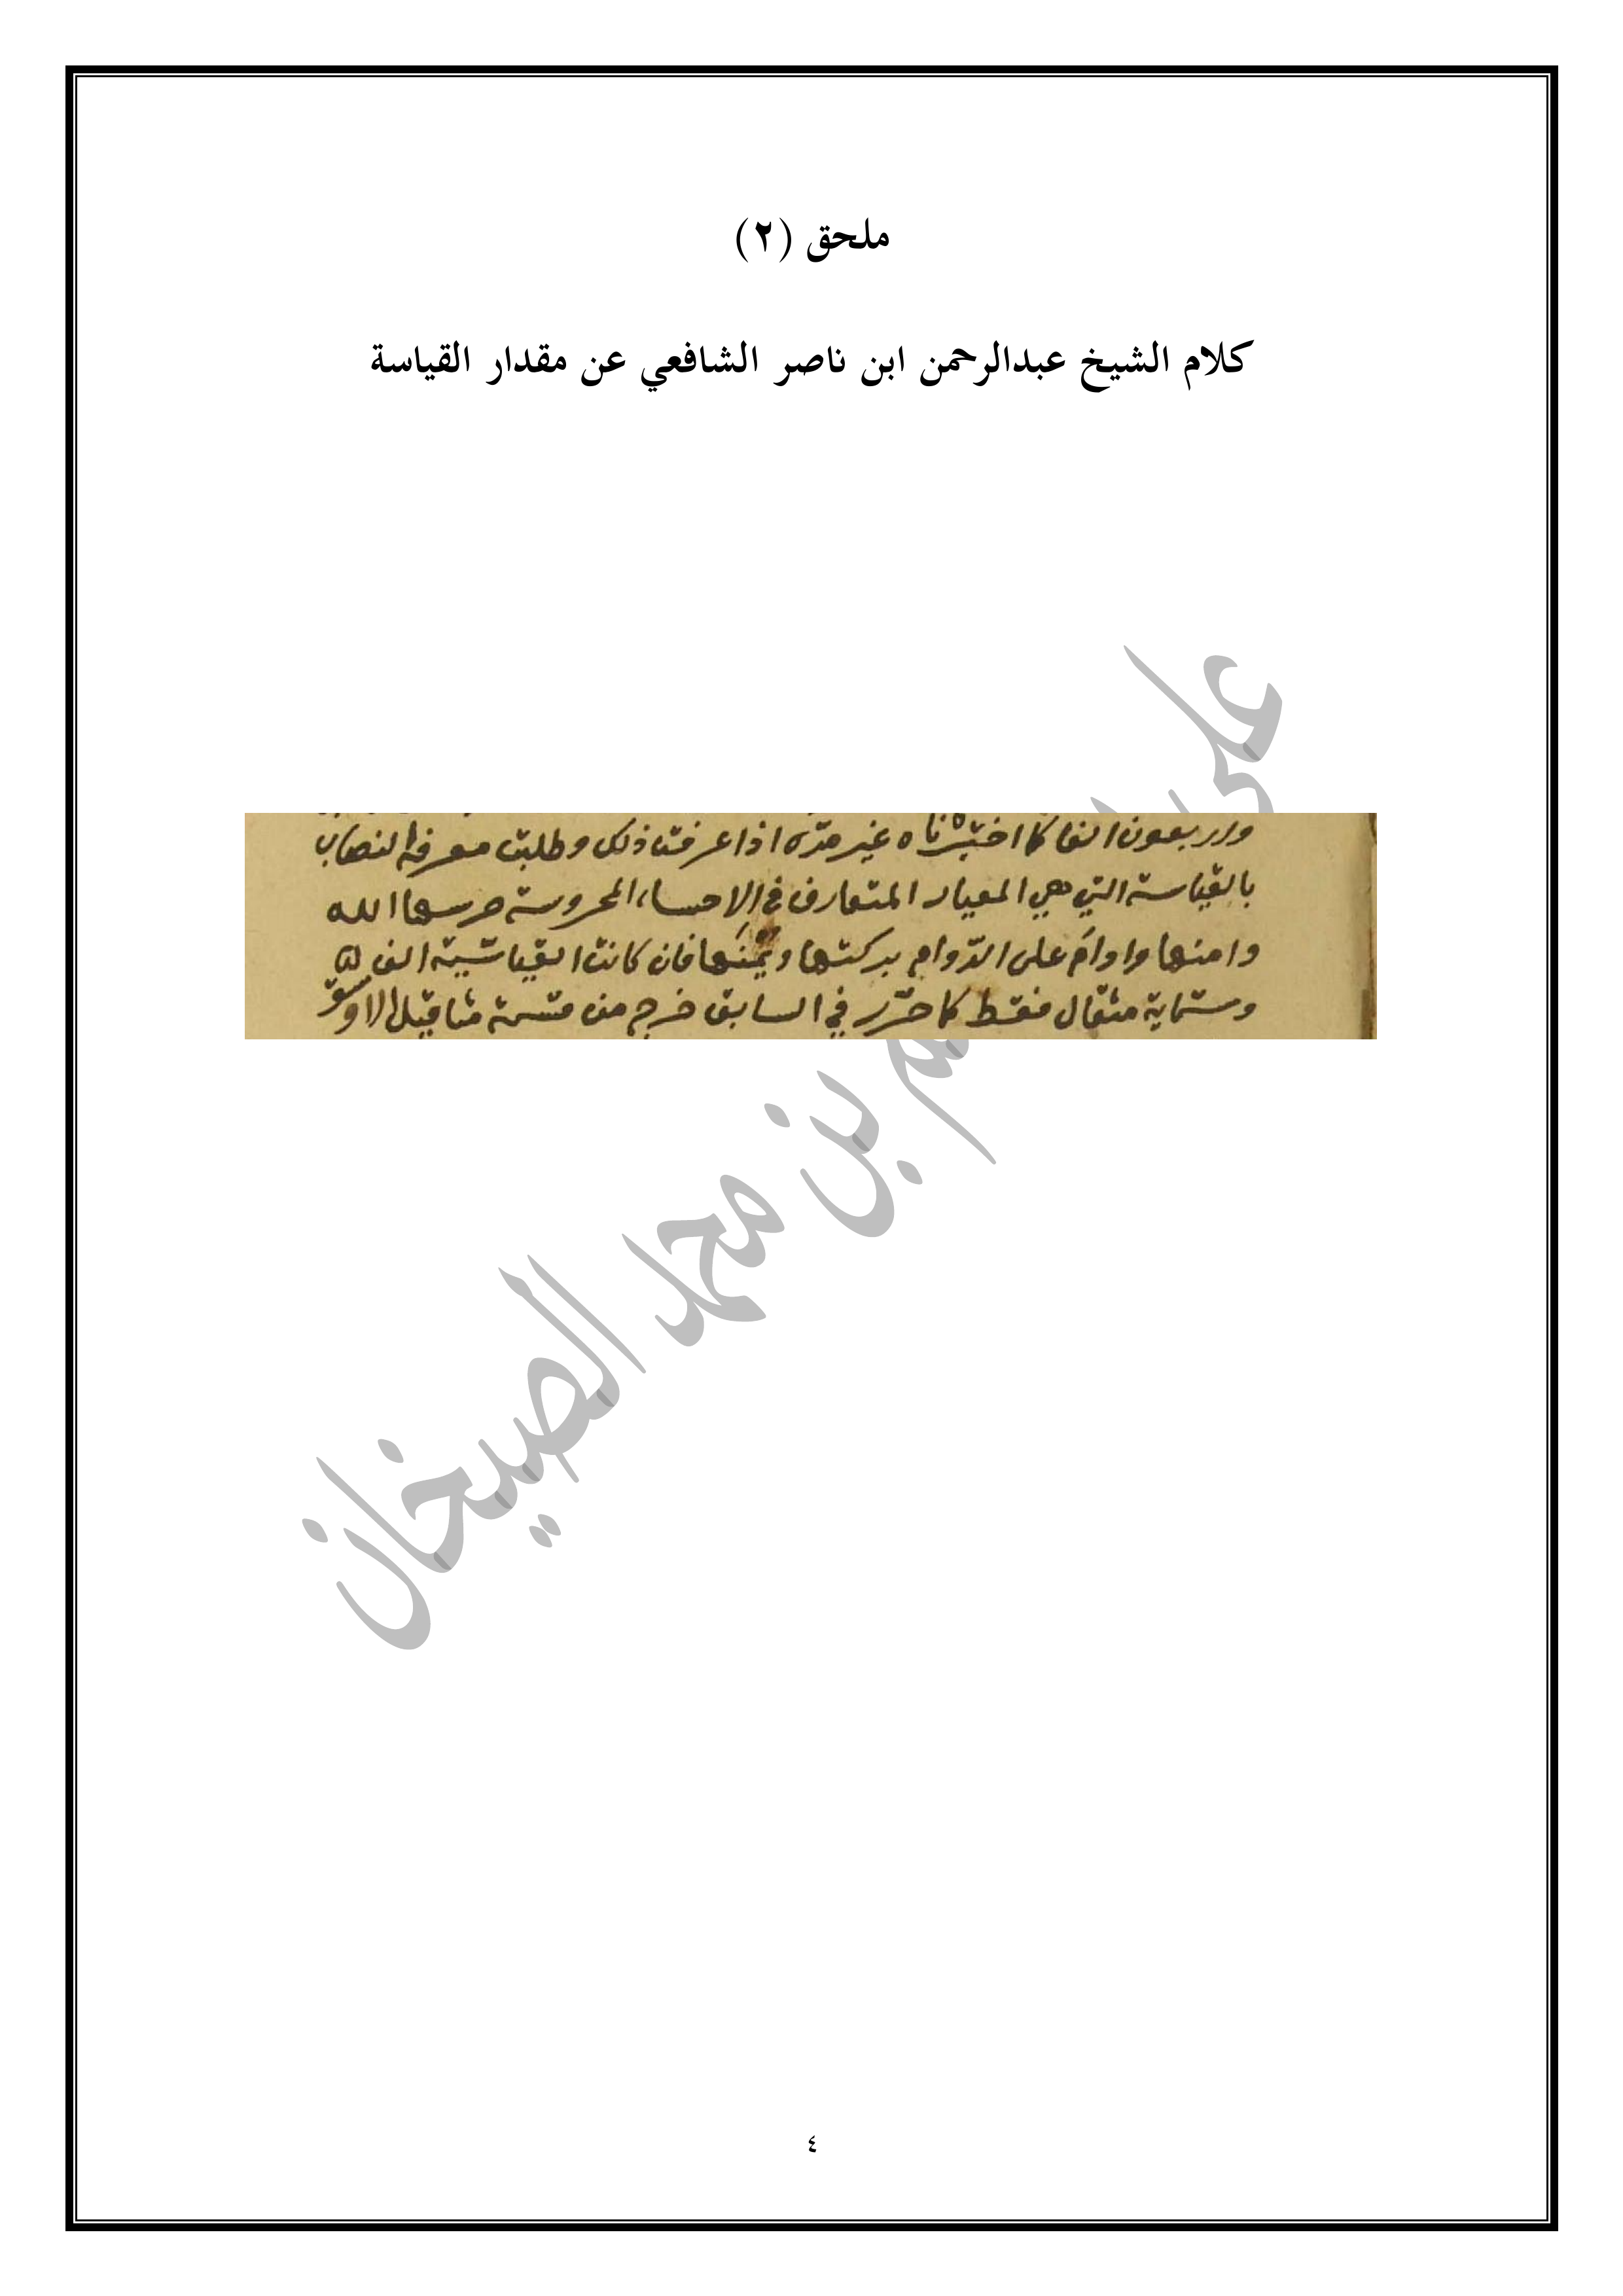 ملحق (٢)
كلام الشيخ عبدالرحمن ابن ناصر الشافعي عن مقدار القياسة
واربعون الفا كما اختبرناه غير مرّه اذا عرفت ذلك وطلبت معرفة النصاب
بالقياسة التي هي المعيار المتعارف في الاحساء المحروسة حرسها الله
وامنها وادام على الدّوام بركتها ويمنها فان كانت القياسة الف
وستماية مثقال فقط كما حرّر في السابق خرج من قسمة مثاقيل الاوسق
على بن محمد الصيخان
٤